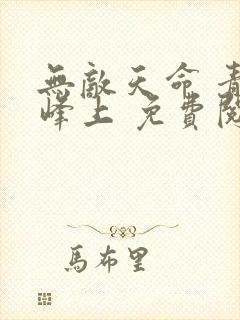 無敵天命 青
峰上 免費閱
馬布里